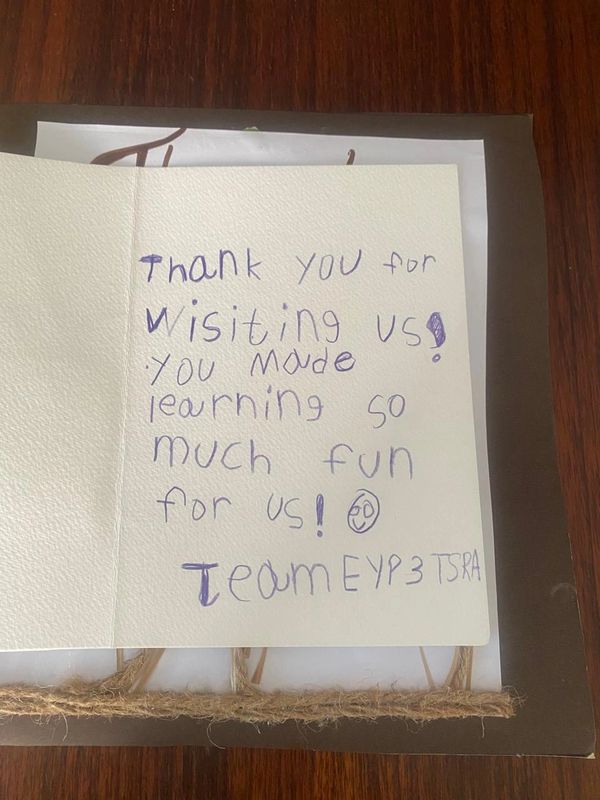 Thank you for
Visiting us!
You made
learning so
much fun
for us!
Team EYP3 TSRA